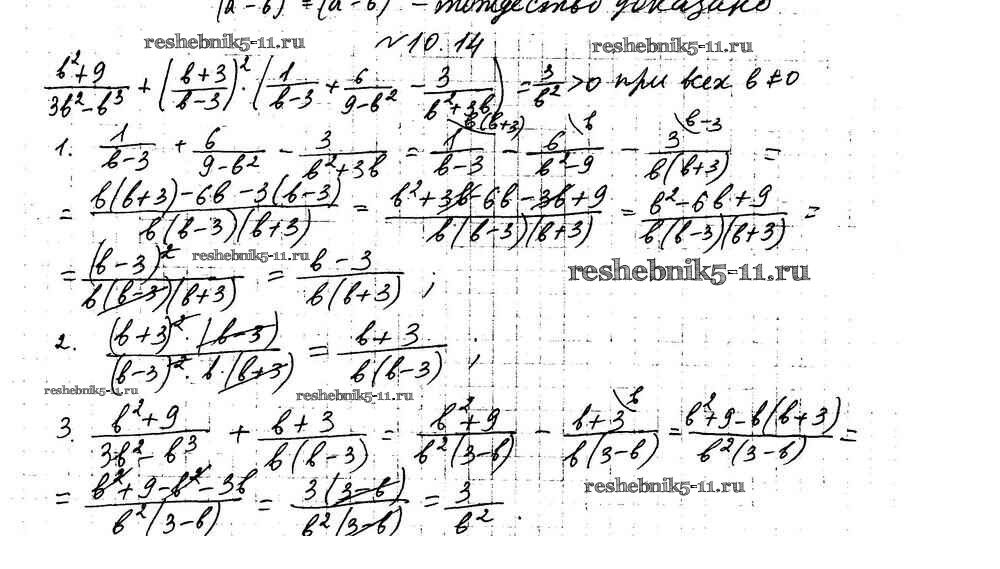 (a-b) = (a-b) - тождество доказано
reshebnik5-11.ru
№10.14
reshebnik5-11.ru
(b²+9)/(3b²-b³) + ((b+3)/(b-3))² · (1/(b-3) + 6/(9-b²) - 3/(b²+3b)) = 3/b² > 0 при всех b ≠ 0
b(b+3)
1. 1/(b-3) + 6/(9-b²) - 3/(b²+3b) = 1/(b-3) - 6/(b²-9) \b - 3/(b(b+3)) \b-3 =
= (b(b+3)-6b-3(b-3))/(b(b-3)(b+3)) = (b²+3b-6b-3b+9)/(b(b-3)(b+3)) = (b²-6b+9)/(b(b-3)(b+3)) =
reshebnik5-11.ru
= (b-3)²/(b(b-3)(b+3)) = (b-3)/(b(b+3)) ;
reshebnik5-11.ru
2. ((b+3)²·(b-3))/((b-3)²·b·(b+3)) = (b+3)/(b(b-3)) ;
reshebnik5-11.ru
reshebnik5-11.ru
3. (b²+9)/(3b²-b³) + (b+3)/(b(b-3)) = (b²+9)/(b²(3-b)) - (b+3)/(b(3-b)) \b = (b²+9-b(b+3))/(b²(3-b)) =
= (b²+9-b²-3b)/(b²(3-b)) = (3(3-b))/(b²(3-b)) = 3/b² .
reshebnik5-11.ru